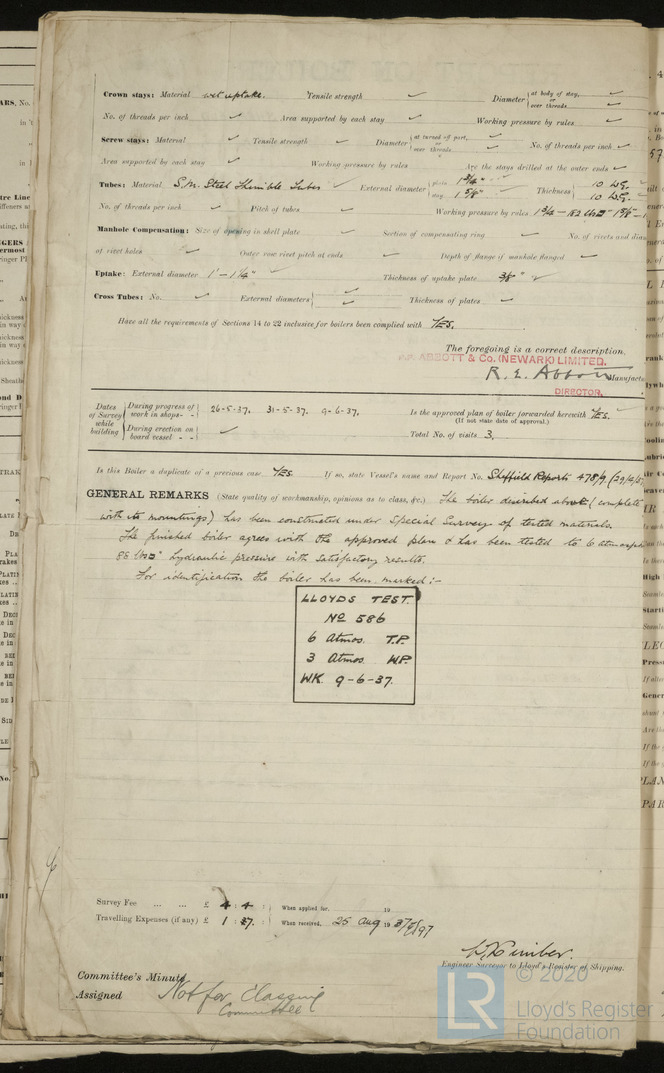 Crown stays: Material wet uptake. Tensile strength ✓ Diameter { at body of stay, ✓ or over threads ✓
No. of threads per inch ✓ Area supported by each stay ✓ Working pressure by rules ✓
Screw stays: Material ✓ Tensile strength ✓ Diameter { at turned off part, ✓ or over threads ✓ No. of threads per inch ✓
Area supported by each stay ✓ Working pressure by rules ✓ Are the stays drilled at the outer ends ✓
Tubes: Material S.M. Steel Thimble Tubes ✓ External diameter { plain 1 3/4" ✓ stay 1 5/8" ✓ Thickness { 10 W.G. 10 W.G.
No. of threads per inch ✓ Pitch of tubes ✓ Working pressure by rules 1 3/4 - 182 lbs□" 1 5/8" -
Manhole Compensation: Size of opening in shell plate ✓ Section of compensating ring ✓ No. of rivets and diam
of rivet holes ✓ Outer row rivet pitch at ends ✓ Depth of flange if manhole flanged ✓
Uptake: External diameter 1' - 1 1/4" ✓ Thickness of uptake plate 3/8" ✓
Cross Tubes: No. ✓ External diameters { ✓ ✓ Thickness of plates ✓
Have all the requirements of Sections 14 to 22 inclusive for boilers been complied with YES.
The foregoing is a correct description,
ABBOTT & Co. (NEWARK) LIMITED.
R. E. Abbott Manufactu
DIRECTOR.
Dates of Survey while building { During progress of work in shops - - 26-5-37. 31-5-37. 9-6-37. Is the approved plan of boiler forwarded herewith YES. ✓
(If not state date of approval.)
During erection on board vessel - - ✓ Total No. of visits 3.
Is this Boiler a duplicate of a previous case YES If so, state Vessel's name and Report No. Sheffield Reports 478/9
GENERAL REMARKS (State quality of workmanship, opinions as to class, &c.) The boiler described above (complete
with its mountings) has been constructed under Special Survey of tested materials.
The finished boiler agrees with the approved plan & has been tested to 6 atmosph
85 lbs□" hydraulic pressure with satisfactory results.
For identification the boiler has been marked:-
LLOYDS TEST.
No 586
6 Atmos. T.P.
3 Atmos. W.P.
WK. 9-6-37.
Survey Fee ... ... £ 4 : 4 : When applied for, 19
Travelling Expenses (if any) £ 1 : 17 : When received, 25 Aug 19 37
Engineer Surveyor to Lloyd's Register of Shipping.
Committee's Minute
Assigned Not for Classing
Committee
© 2020
LR Lloyd's Register
Foundation